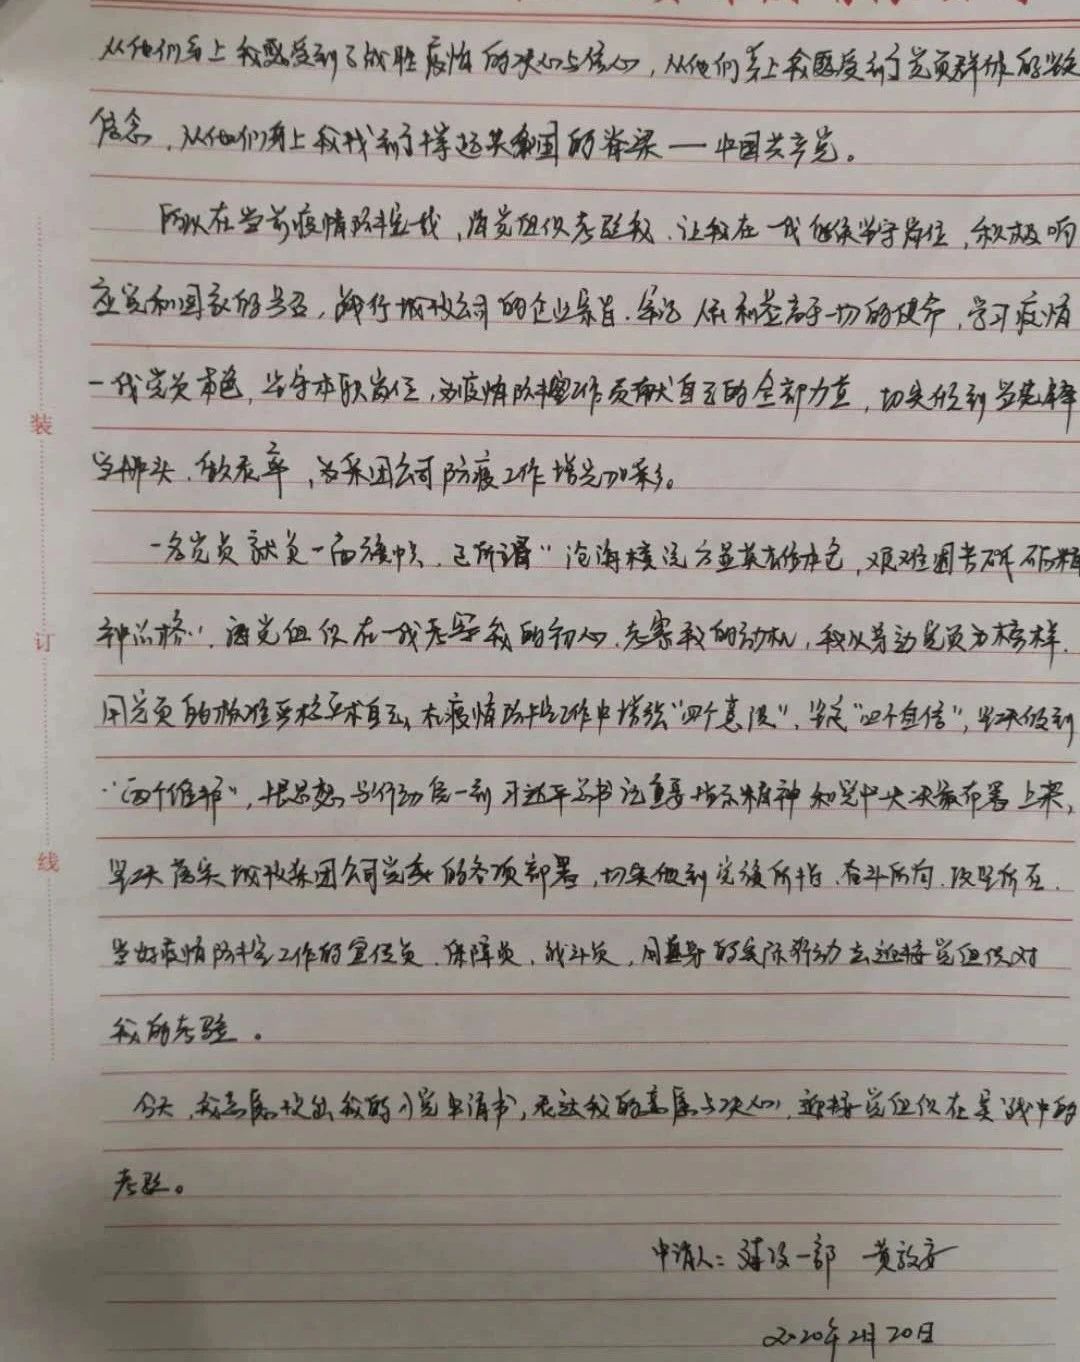 从他们身上我感受到了战胜疫情的决心与信心，从他们身上我感受到了党员群体的坚定
信念，从他们身上我找到了撑起共和国的脊梁——中国共产党。
所以在当前疫情防控一线，请党组织考验我，让我在一线继续坚守岗位，积极响
应党和国家的号召，践行城投公司的企业宗旨，牢记人民利益高于一切的使命，学习疫情
一线党员本色，坚守本职岗位，为疫情防控工作贡献自己的全部力量，切实做到当先锋
当排头、做表率，为集团公司防疫工作增光加彩。
一名党员就是一面旗帜，正所谓"沧海横流方显英雄本色，艰难困苦砥砺精
神品格"，请党组织在一线考察我的初心，考察我的动机，我以身边党员为榜样，
用党员的标准严格要求自己，在疫情防控工作中增强"四个意识"，坚定"四个自信"，坚决做到
"两个维护"，把思想与行动统一到习近平总书记重要指示精神和党中央决策部署上来，
坚决落实城投集团公司党委的各项部署，切实做到党旗所指、奋斗所向、攻坚所在，
当好疫情防控工作的宣传员、保障员、战斗员，用自身的实际行动去迎接党组织对
我的考验。
今天，我志愿提出我的入党申请书，表达我的意愿与决心，迎接党组织在实战中的
考验。
申请人：建设一部 黄
2020年2月20日
装
订
线